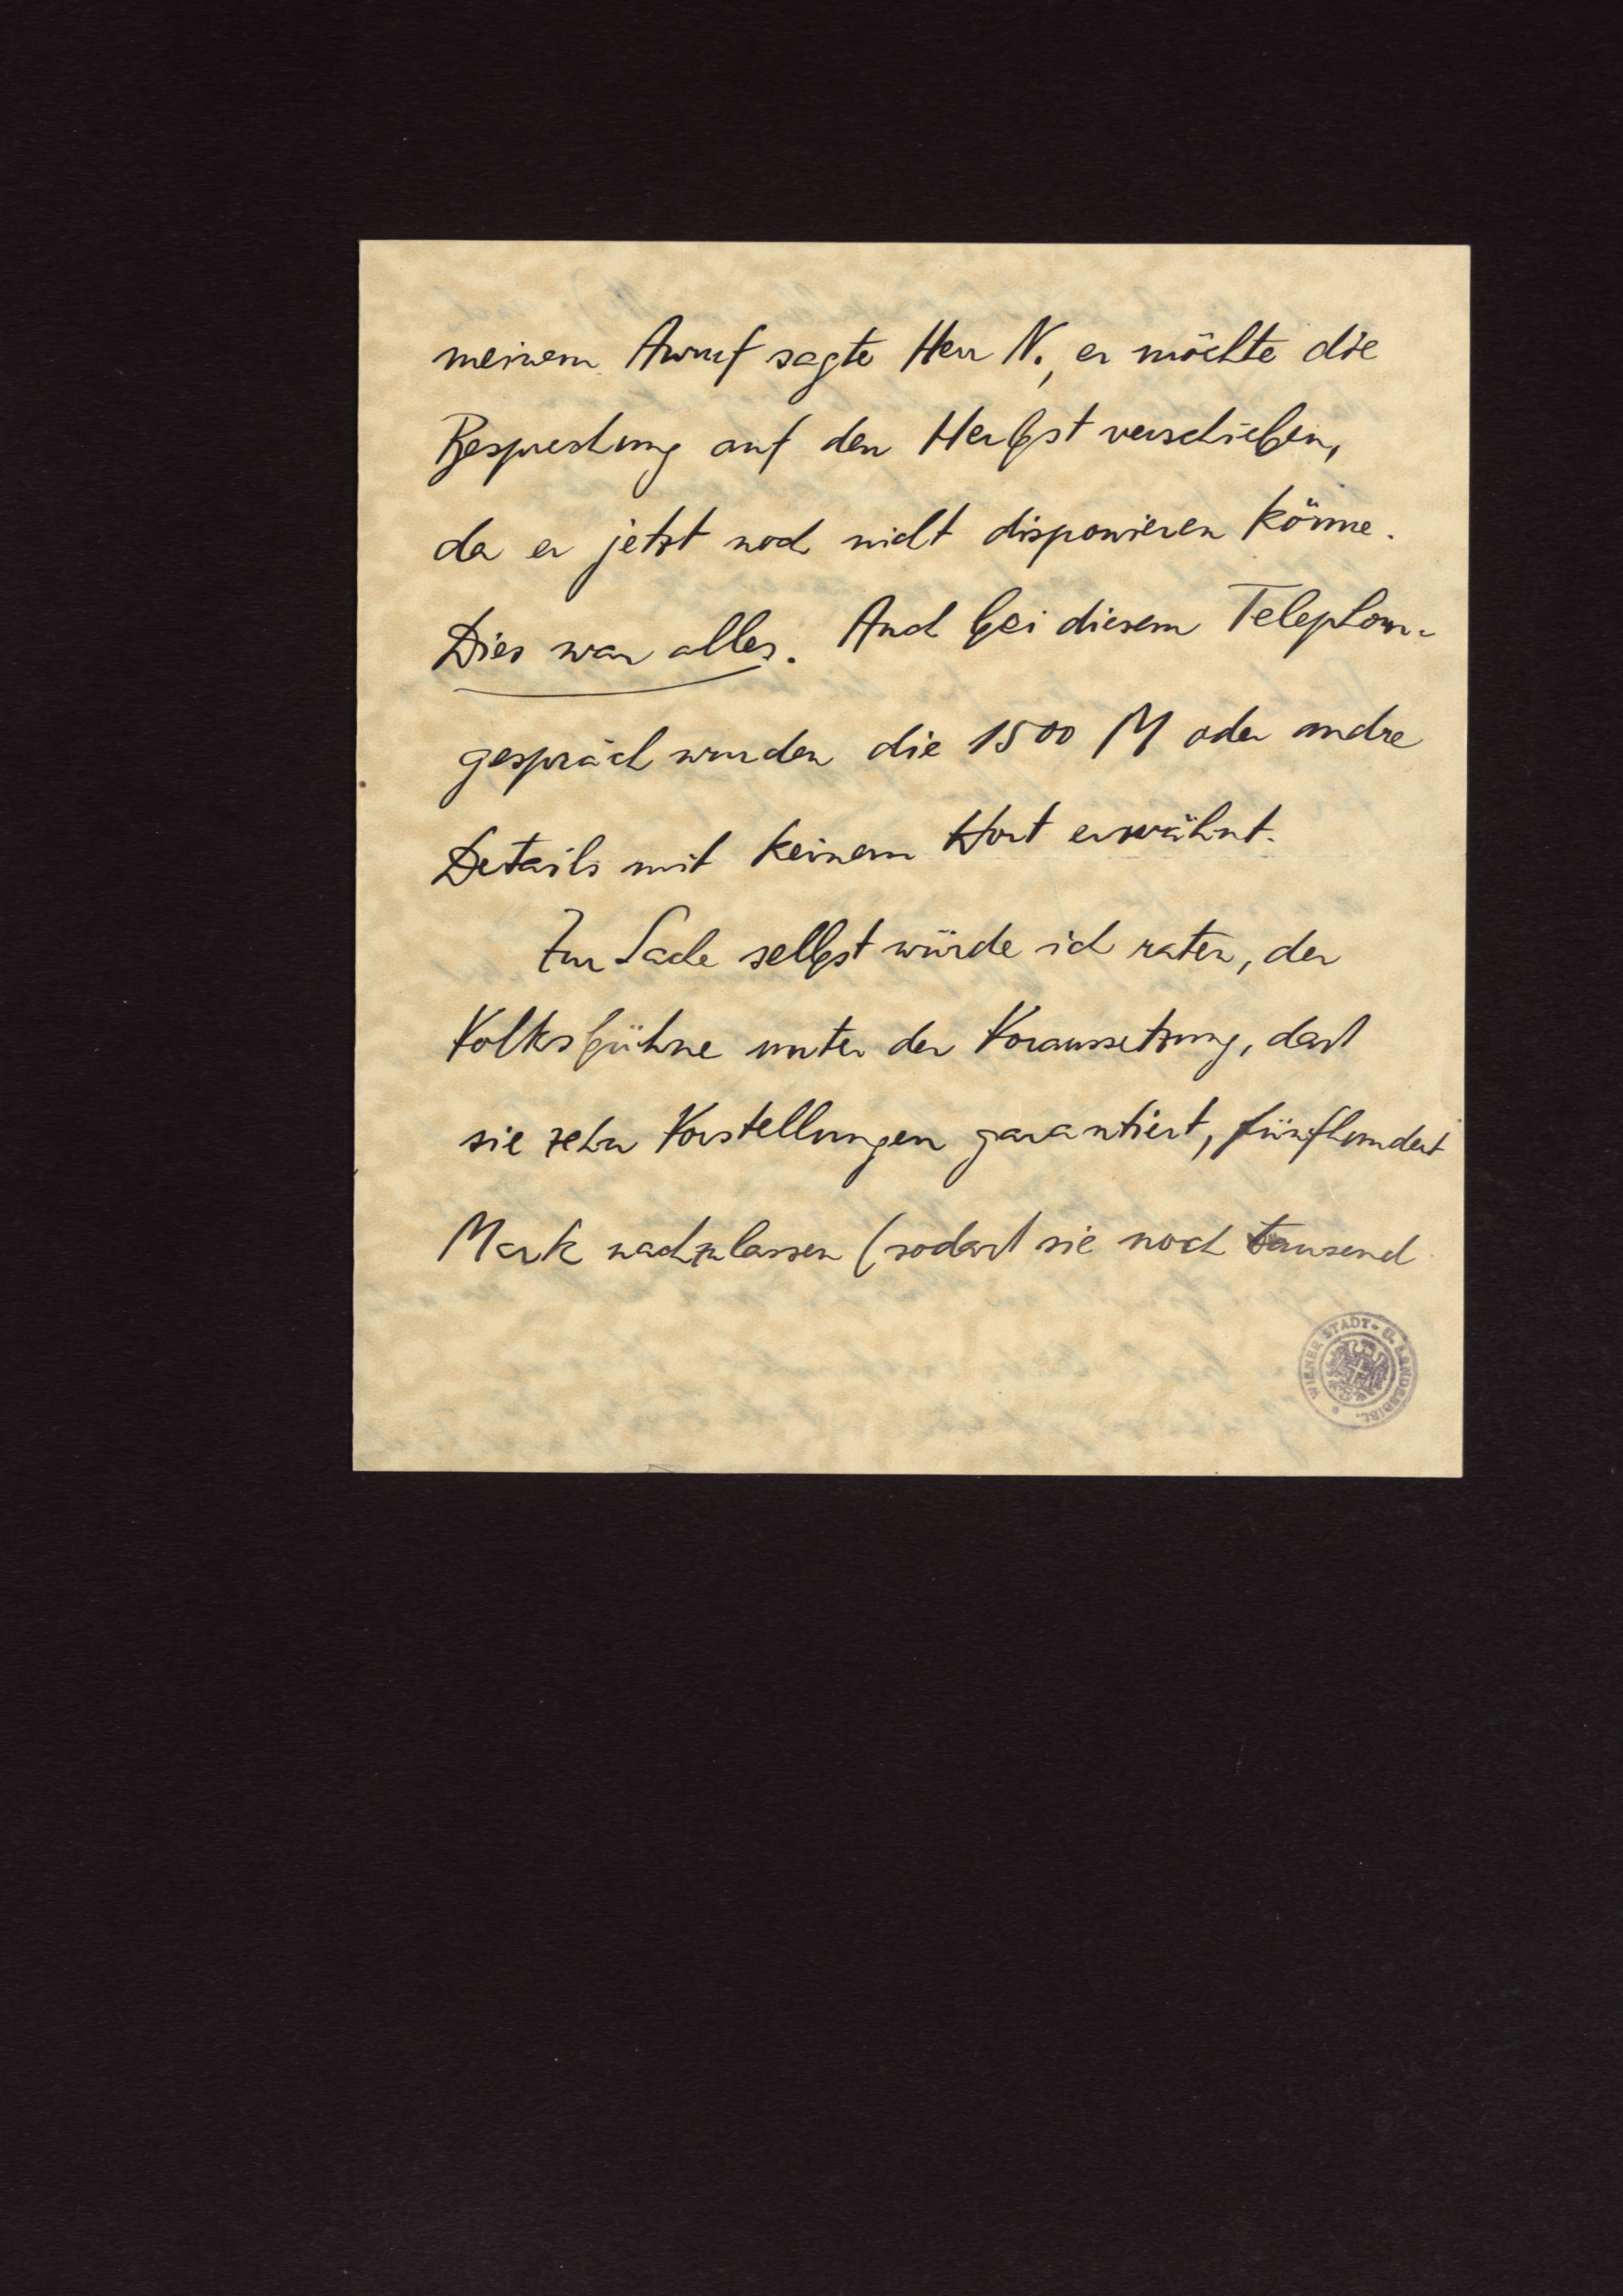 meinem Anruf sagte Herr N., er möchte die
Besprechung auf den Herbst verschieben,
da er jetzt noch nicht disponieren könne.
Dies war alles. Auch bei diesem Telephon-
gespräch wurden die 1500 M oder andre
Details mit keinem Wort erwähnt.
Zur Sache selbst würde ich raten, der
Volksbühne unter der Voraussetzung, dass
sie zehn Vorstellungen garantiert, fünfhundert
Mark nachzulassen (sodass sie noch tausend
WIENER STADT- U. LANDESBIBL.